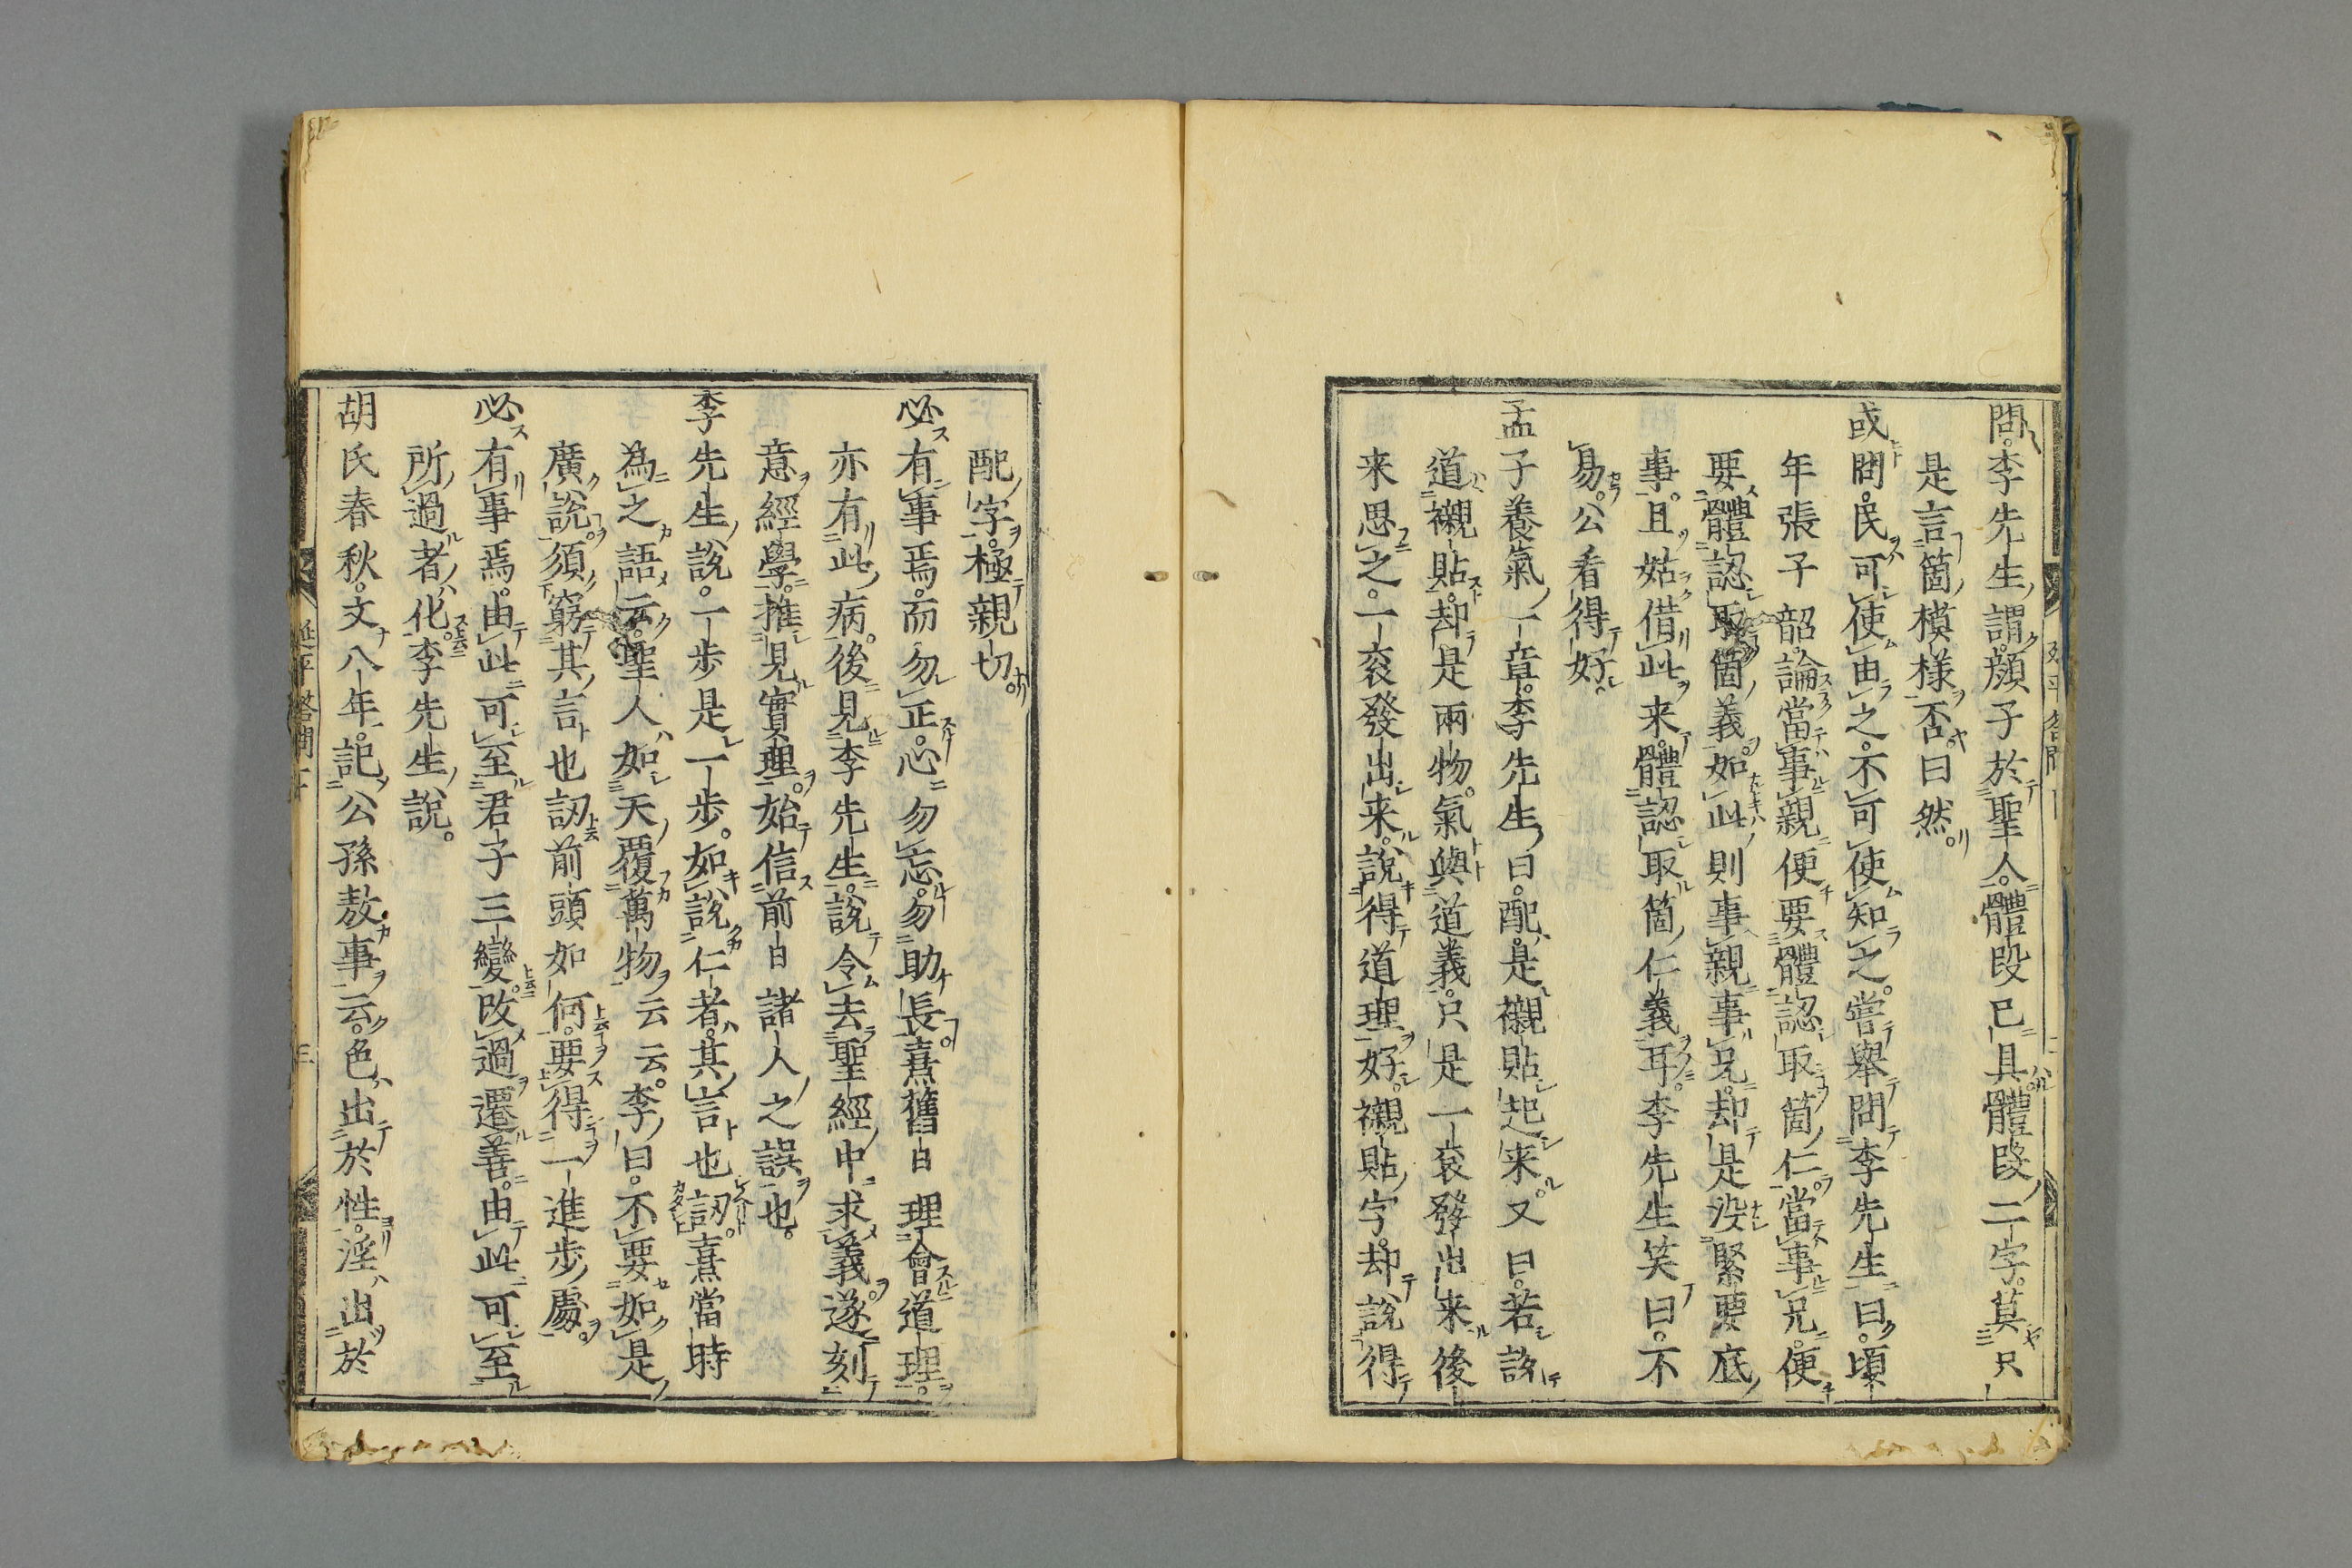 問李先生謂顔子於聖人體段已具體段二字莫只
是言箇模様否曰然
或問民可使由之不可使知之嘗舉問李先生曰頃
年張子韶論當事親便要體認取箇仁當事兄便
要體認取箇義如此則事親事兄却是没緊要底
事且姑借此来體認取箇仁義耳李先生笑曰不
易公看得好
孟子養氣一章李先生曰配是襯貼起来又曰若說
道襯貼却是兩物氣與道義只是一衮發出来後
来思之一衮發出来說得道理好襯貼字却說得
配字極親切
必有事焉而勿正心勿忘勿助長熹舊日理會道理
亦有此病後見李先生說令去聖經中求義遂刻
意經學推見實理始信前日諸人之誤也
李先生說一步是一步如說仁者其言也訒熹當時
為之語云聖人如天覆萬物云云李曰不要如是
廣說須窮其言也訒前頭如何要得一進步處
必有事焉由此可至君子三變改過遷善由此可至
所過者化李先生說
胡氏春秋文八年記公孫敖事云色出於性淫出於
延平答問